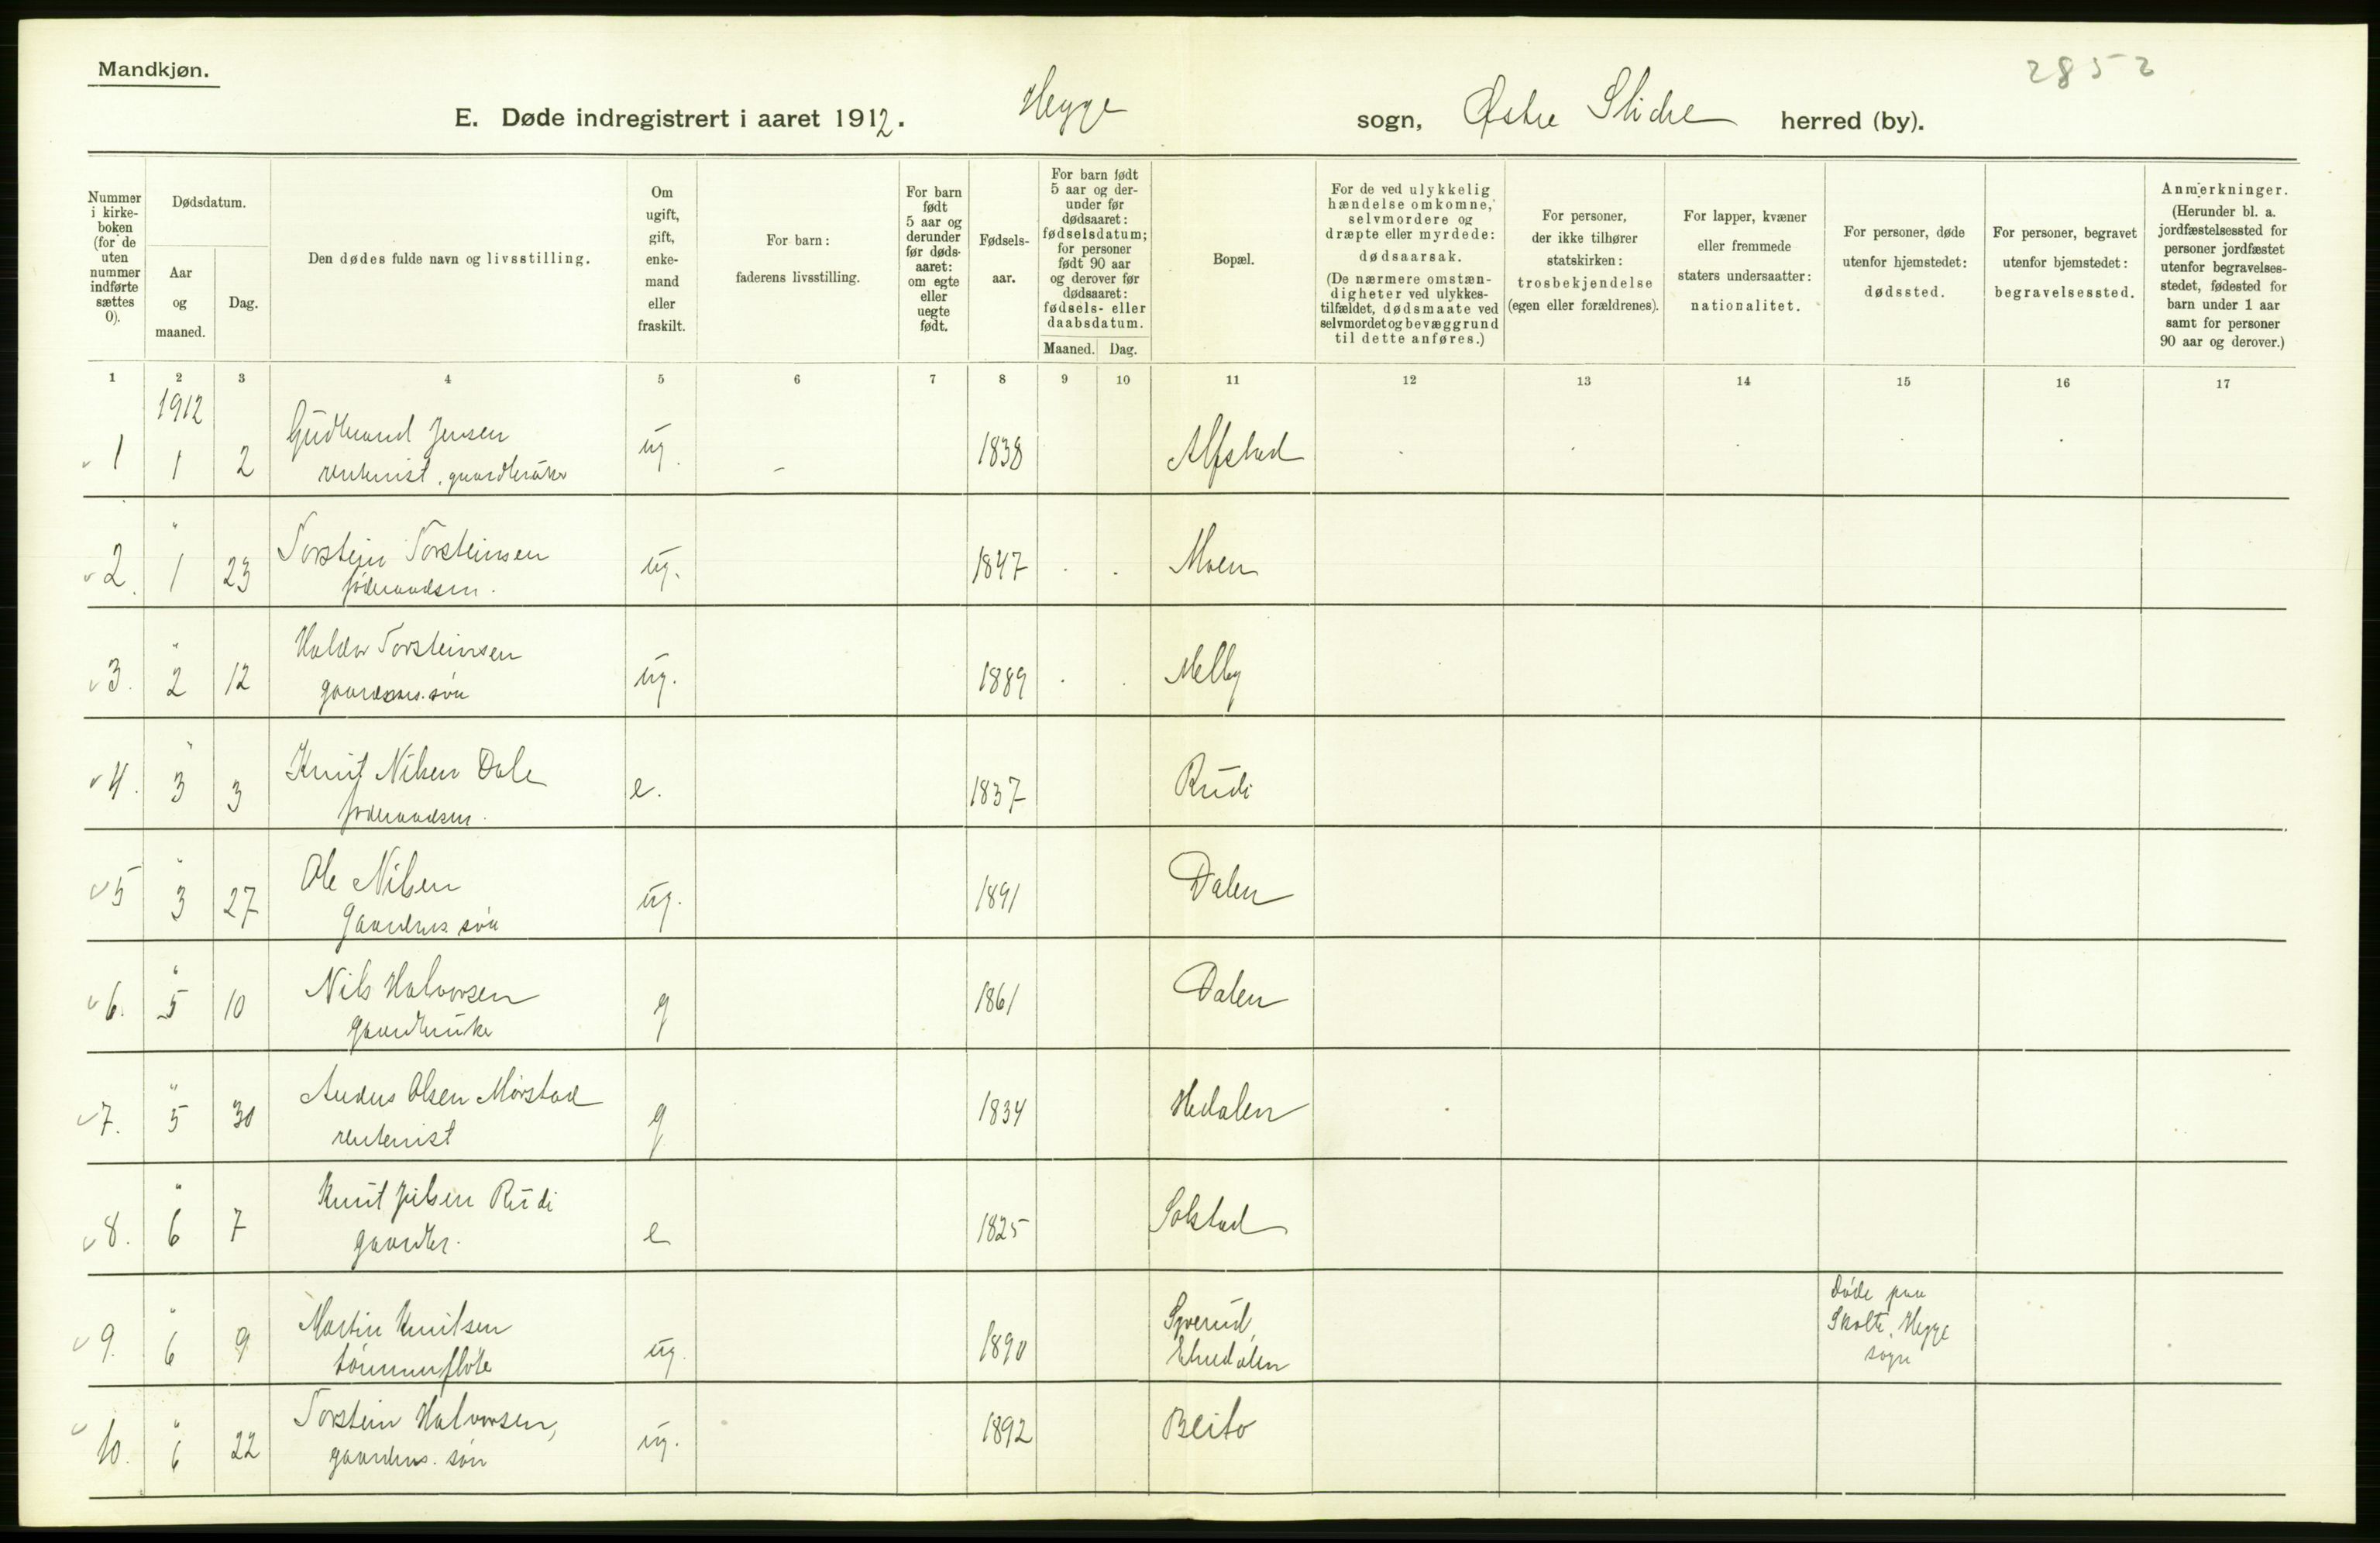 Mandkjøn.
2852
E. Døde indregistrert i aaret 1912. Hegge sogn, Østre Slidre herred (by).
Nummer i kirke-boken (for de uten nummer indførte sættes 0).
Dødsdatum.
Aar og maaned.
Dag.
Den dødes fulde navn og livsstilling.
Om ugift, gift, enke-mand eller fraskilt.
For barn: faderens livsstilling.
For barn født 5 aar og derunder før døds-aaret: om egte eller uegte født.
Fødsels-aar.
For barn født 5 aar og der-under før dødsaaret: fødselsdatum; for personer født 90 aar og derover før dødsaaret: fødsels- eller daabsdatum.
Maaned. Dag.
Bopæl.
For de ved ulykkelig hændelse omkomne, selvmordere og dræpte eller myrdede: dødsaarsak.
(De nærmere omstæn-digheter ved ulykkes-tilfældet, dødsmaate ved selvmordet og bevæggrund til dette anføres.)
For personer, der ikke tilhører statskirken: trosbekjendelse (egen eller forældrenes).
For lapper, kvæner eller fremmede staters undersaatter: nationalitet.
For personer, døde utenfor hjemstedet: dødssted.
For personer, begravet utenfor hjemstedet: begravelsessted.
Anmerkninger.
(Herunder bl. a. jordfæstelsessted for personer jordfæstet utenfor begravelses-stedet, fødested for barn under 1 aar samt for personer 90 aar og derover.)
1 2 3 4 5 6 7 8 9 10 11 12 13 14 15 16 17
1912
1 1 2 Gudbrand Jensen ug. - 1838 Alfstad
rentenist, gaardbruker
"
2. 1 23 Torstein Torsteinsen ug. 1847 Moen
föderaadsm.
"
3. 2 12 Haldor Torsteinsen ug. 1889 Melby
gaardbrs. sön
"
4. 3 3 Knut Nilsen Dale e. 1837 Rudi
föderaadsm.
"
5 3 27 Ole Nilsen ug. 1891 Dalen
gaardbrs sön
"
6. 5 10 Nils Halvorsen g 1861 Dalen
gaardbruker
"
7. 5 30 Anders Olsen Mörstad g 1834 Hedalen
rentenist
"
8. 6 7 Knut Jilsen Rudi e 1825 Solstad
gaardbr.
"
9. 6 9 Martin Knutsen ug. 1890
tömmerfløter
Etnedalen
Döde paa
Skolte, Hegge
sogn
"
10. 6 22 Torstein Halvorsen, ug. 1892 Beito
gaardbrs. sön